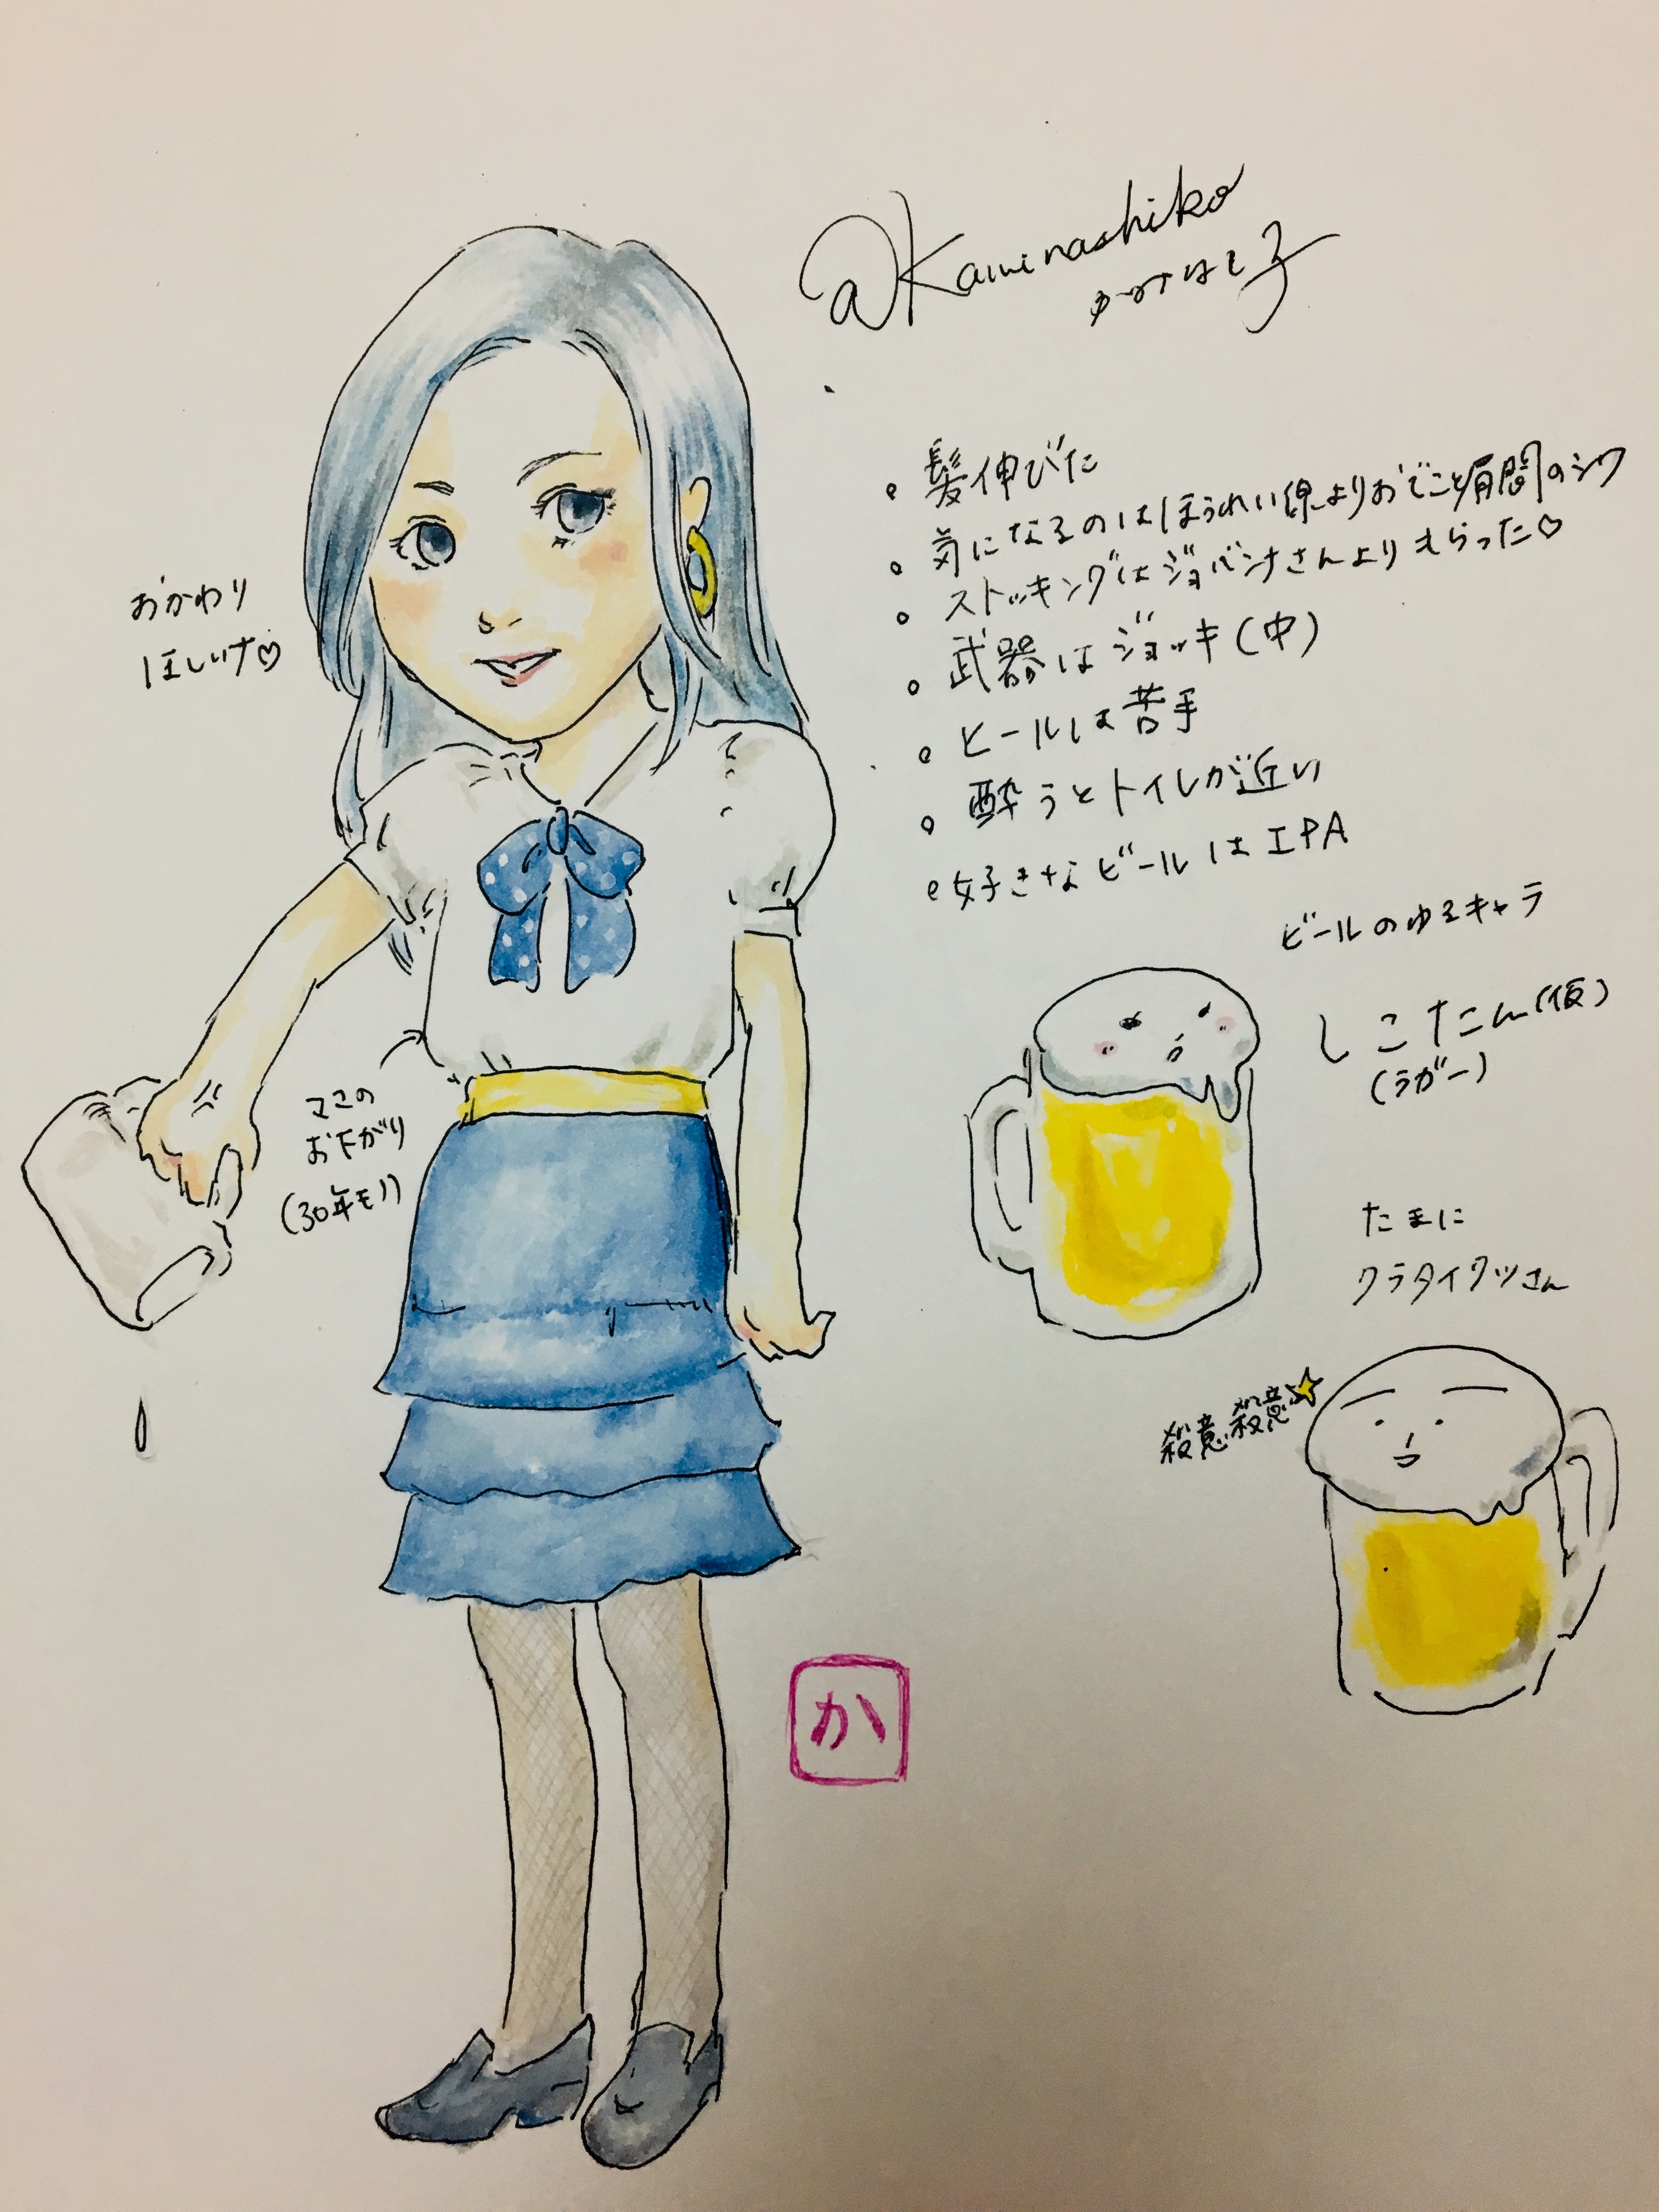 @Kaminashiko
かみなし子
・髪伸びた
・気になるのはほうれい線よりおでこと眉間のシワ
・ストッキングはジョバンナさんよりもらった♡
・武器はジョッキ(中)
・ビールは苦手
・酔うとトイレが近い
・好きなビールはIPA
おかわり
ほしいナ♡
ママの
お下がり
(30年モノ)
ビールのゆるキャラ
しこたん(仮)
(ラガー)
たまに
クラタイクツさん
殺意殺意☆
か